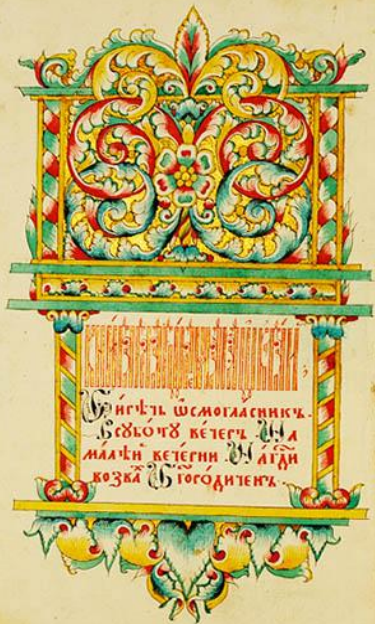 Си́рѣчь ѡсмогласникъ.
Всубо́ту ве́черъ. На
ма́лѣй вече́рни. На́ гдⷭ҇и
возва̑ Бг҃оро́диченъ